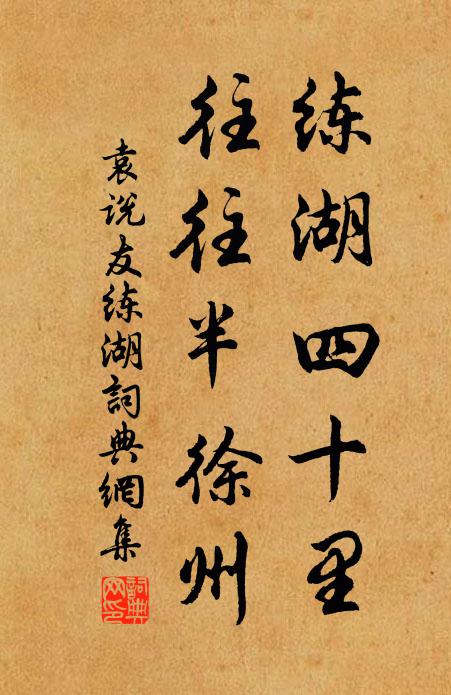 练湖四十里
往往半徐州
袁说友练湖詞典網集
詞典
网印